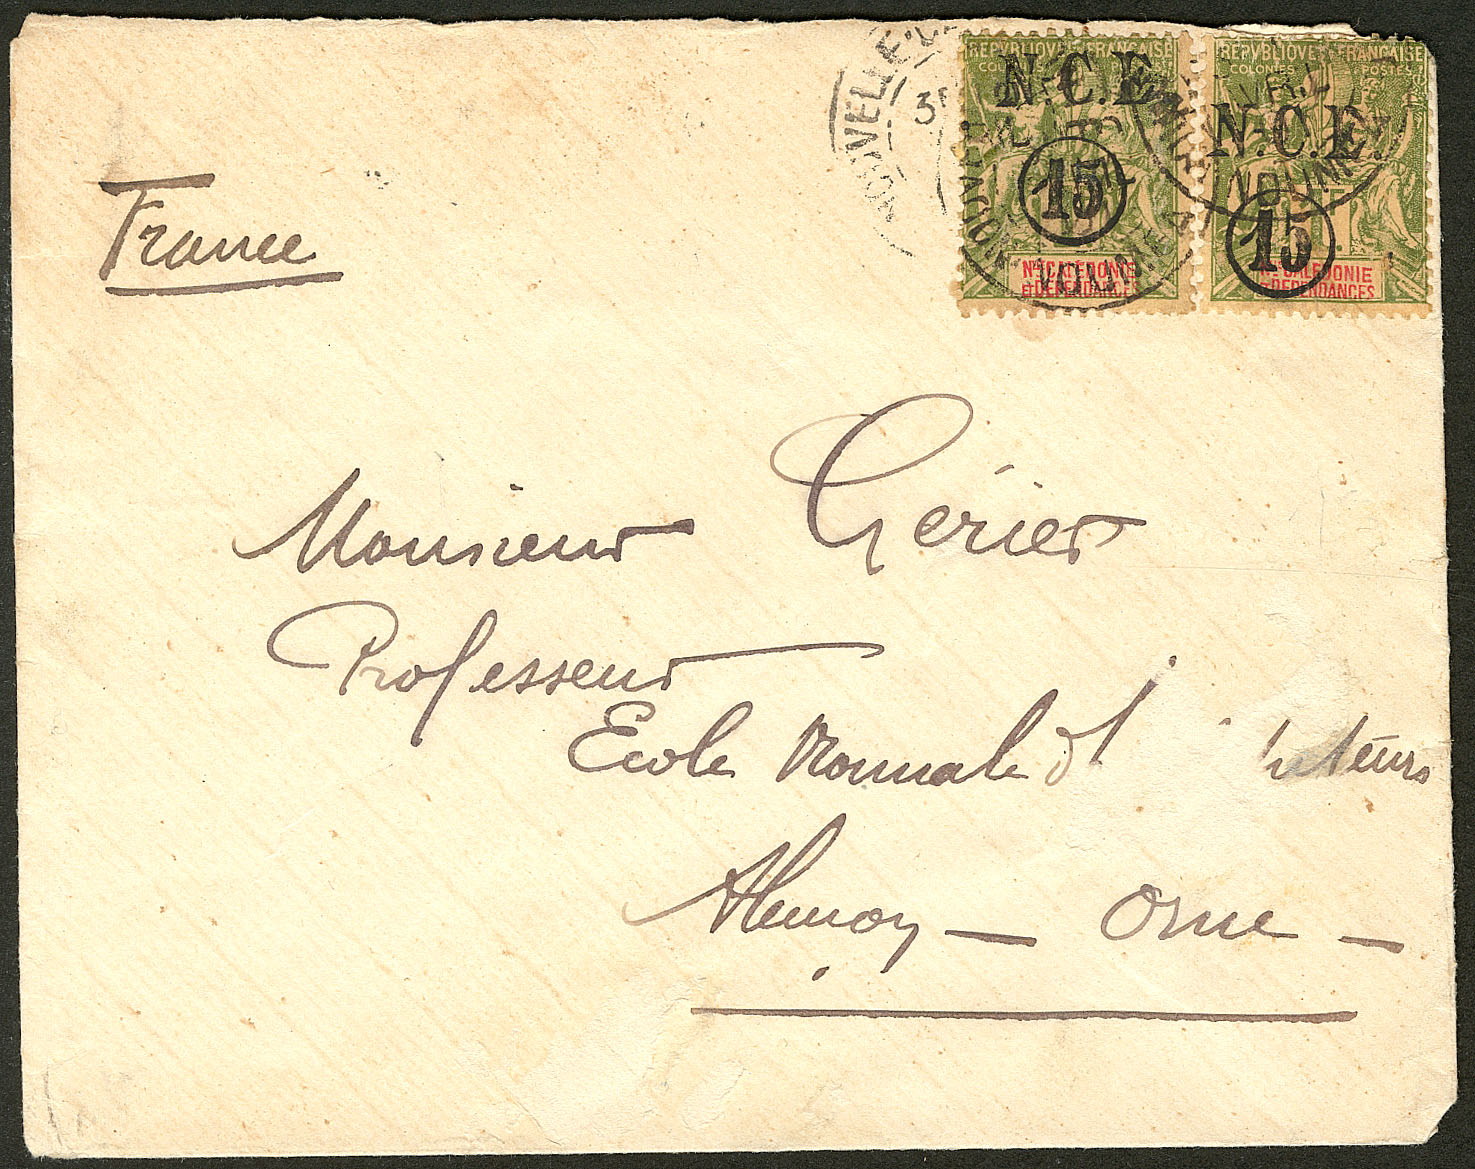 NOUVELLE-C
3E
REPVBLIQVE FRANÇAISE
COLONIES
N.C.E
15
Nlle CALÉDONIE
et DÉPENDANCES
REPVBLIQVE FRANÇAISE
COLONIES POSTES
N.C.E.
15
Nlle CALÉDONIE
et DÉPENDANCES
NOUMEA
France
Monsieur Gérier
Professeur
Ecole Normale d'I teurs
Alençon — Orne —